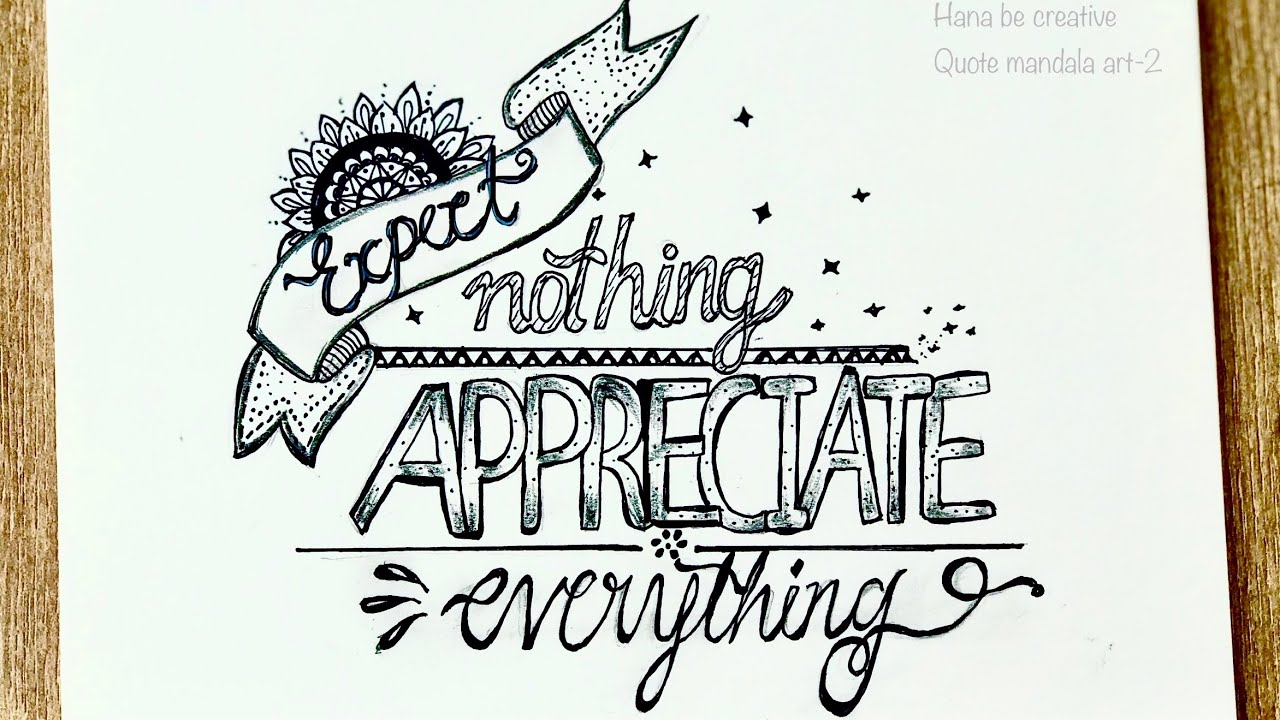 Hana be creative
Quote mandala art-2
Expect
nothing
APPRECIATE
everything